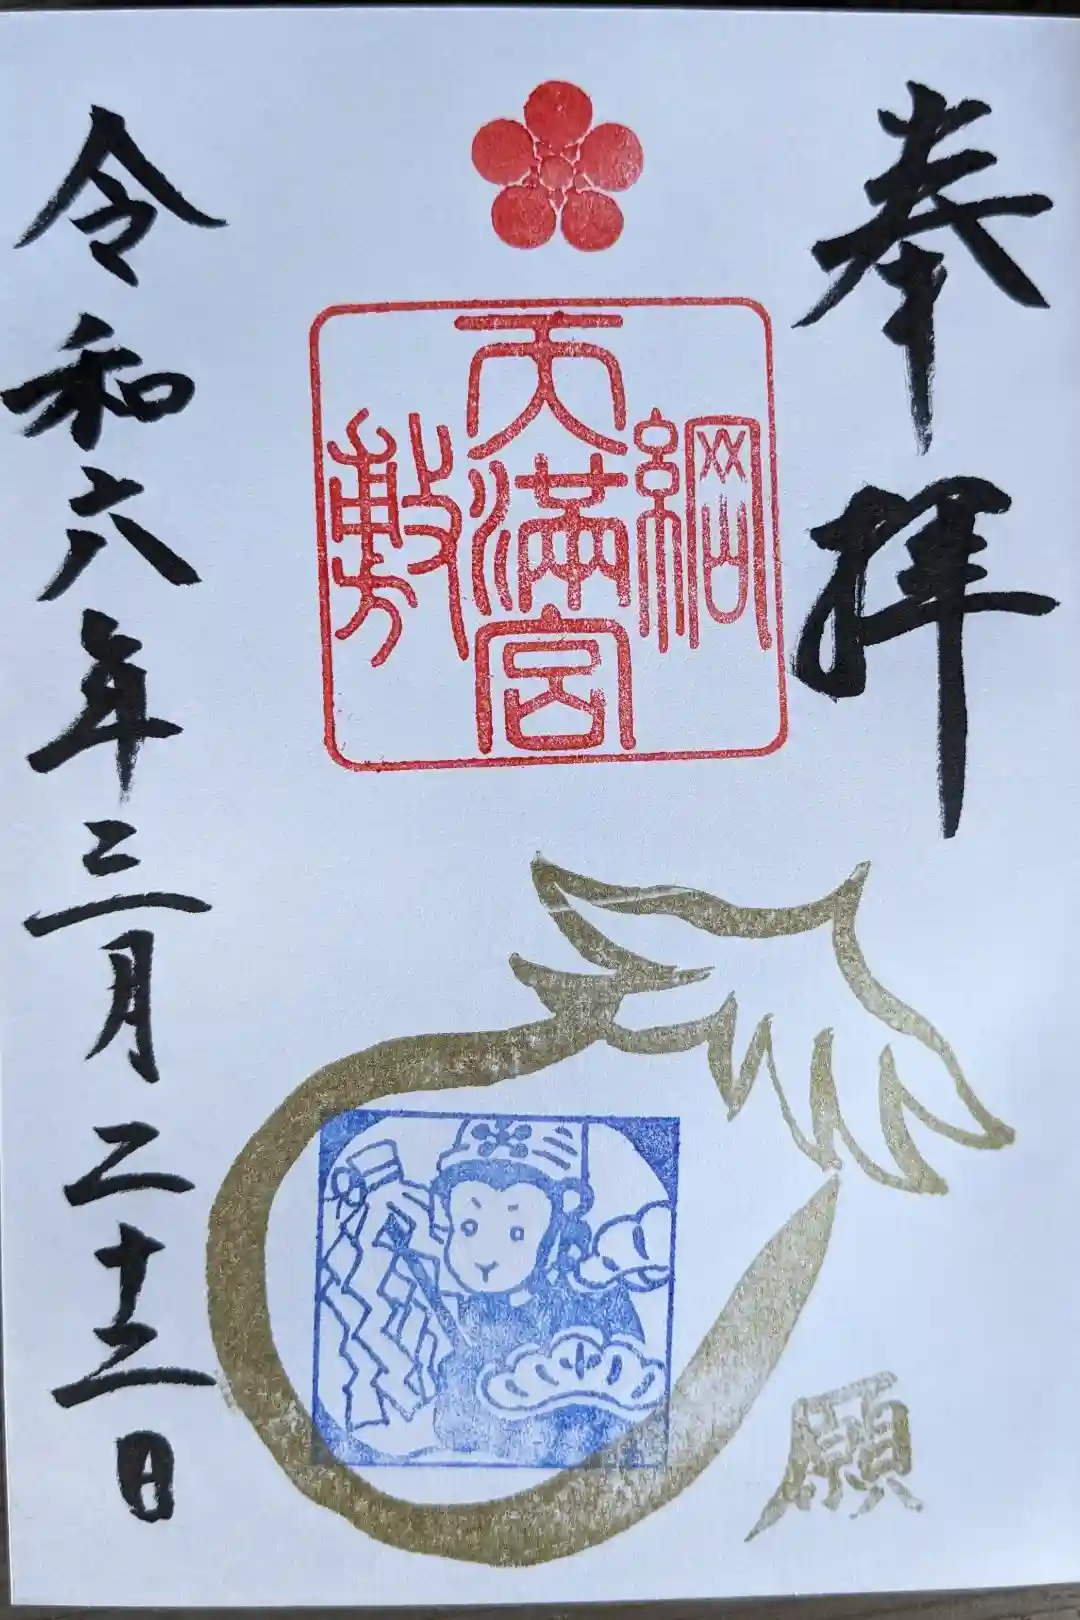 奉拝
綱敷
天満宮
令和六年三月二十二日
願